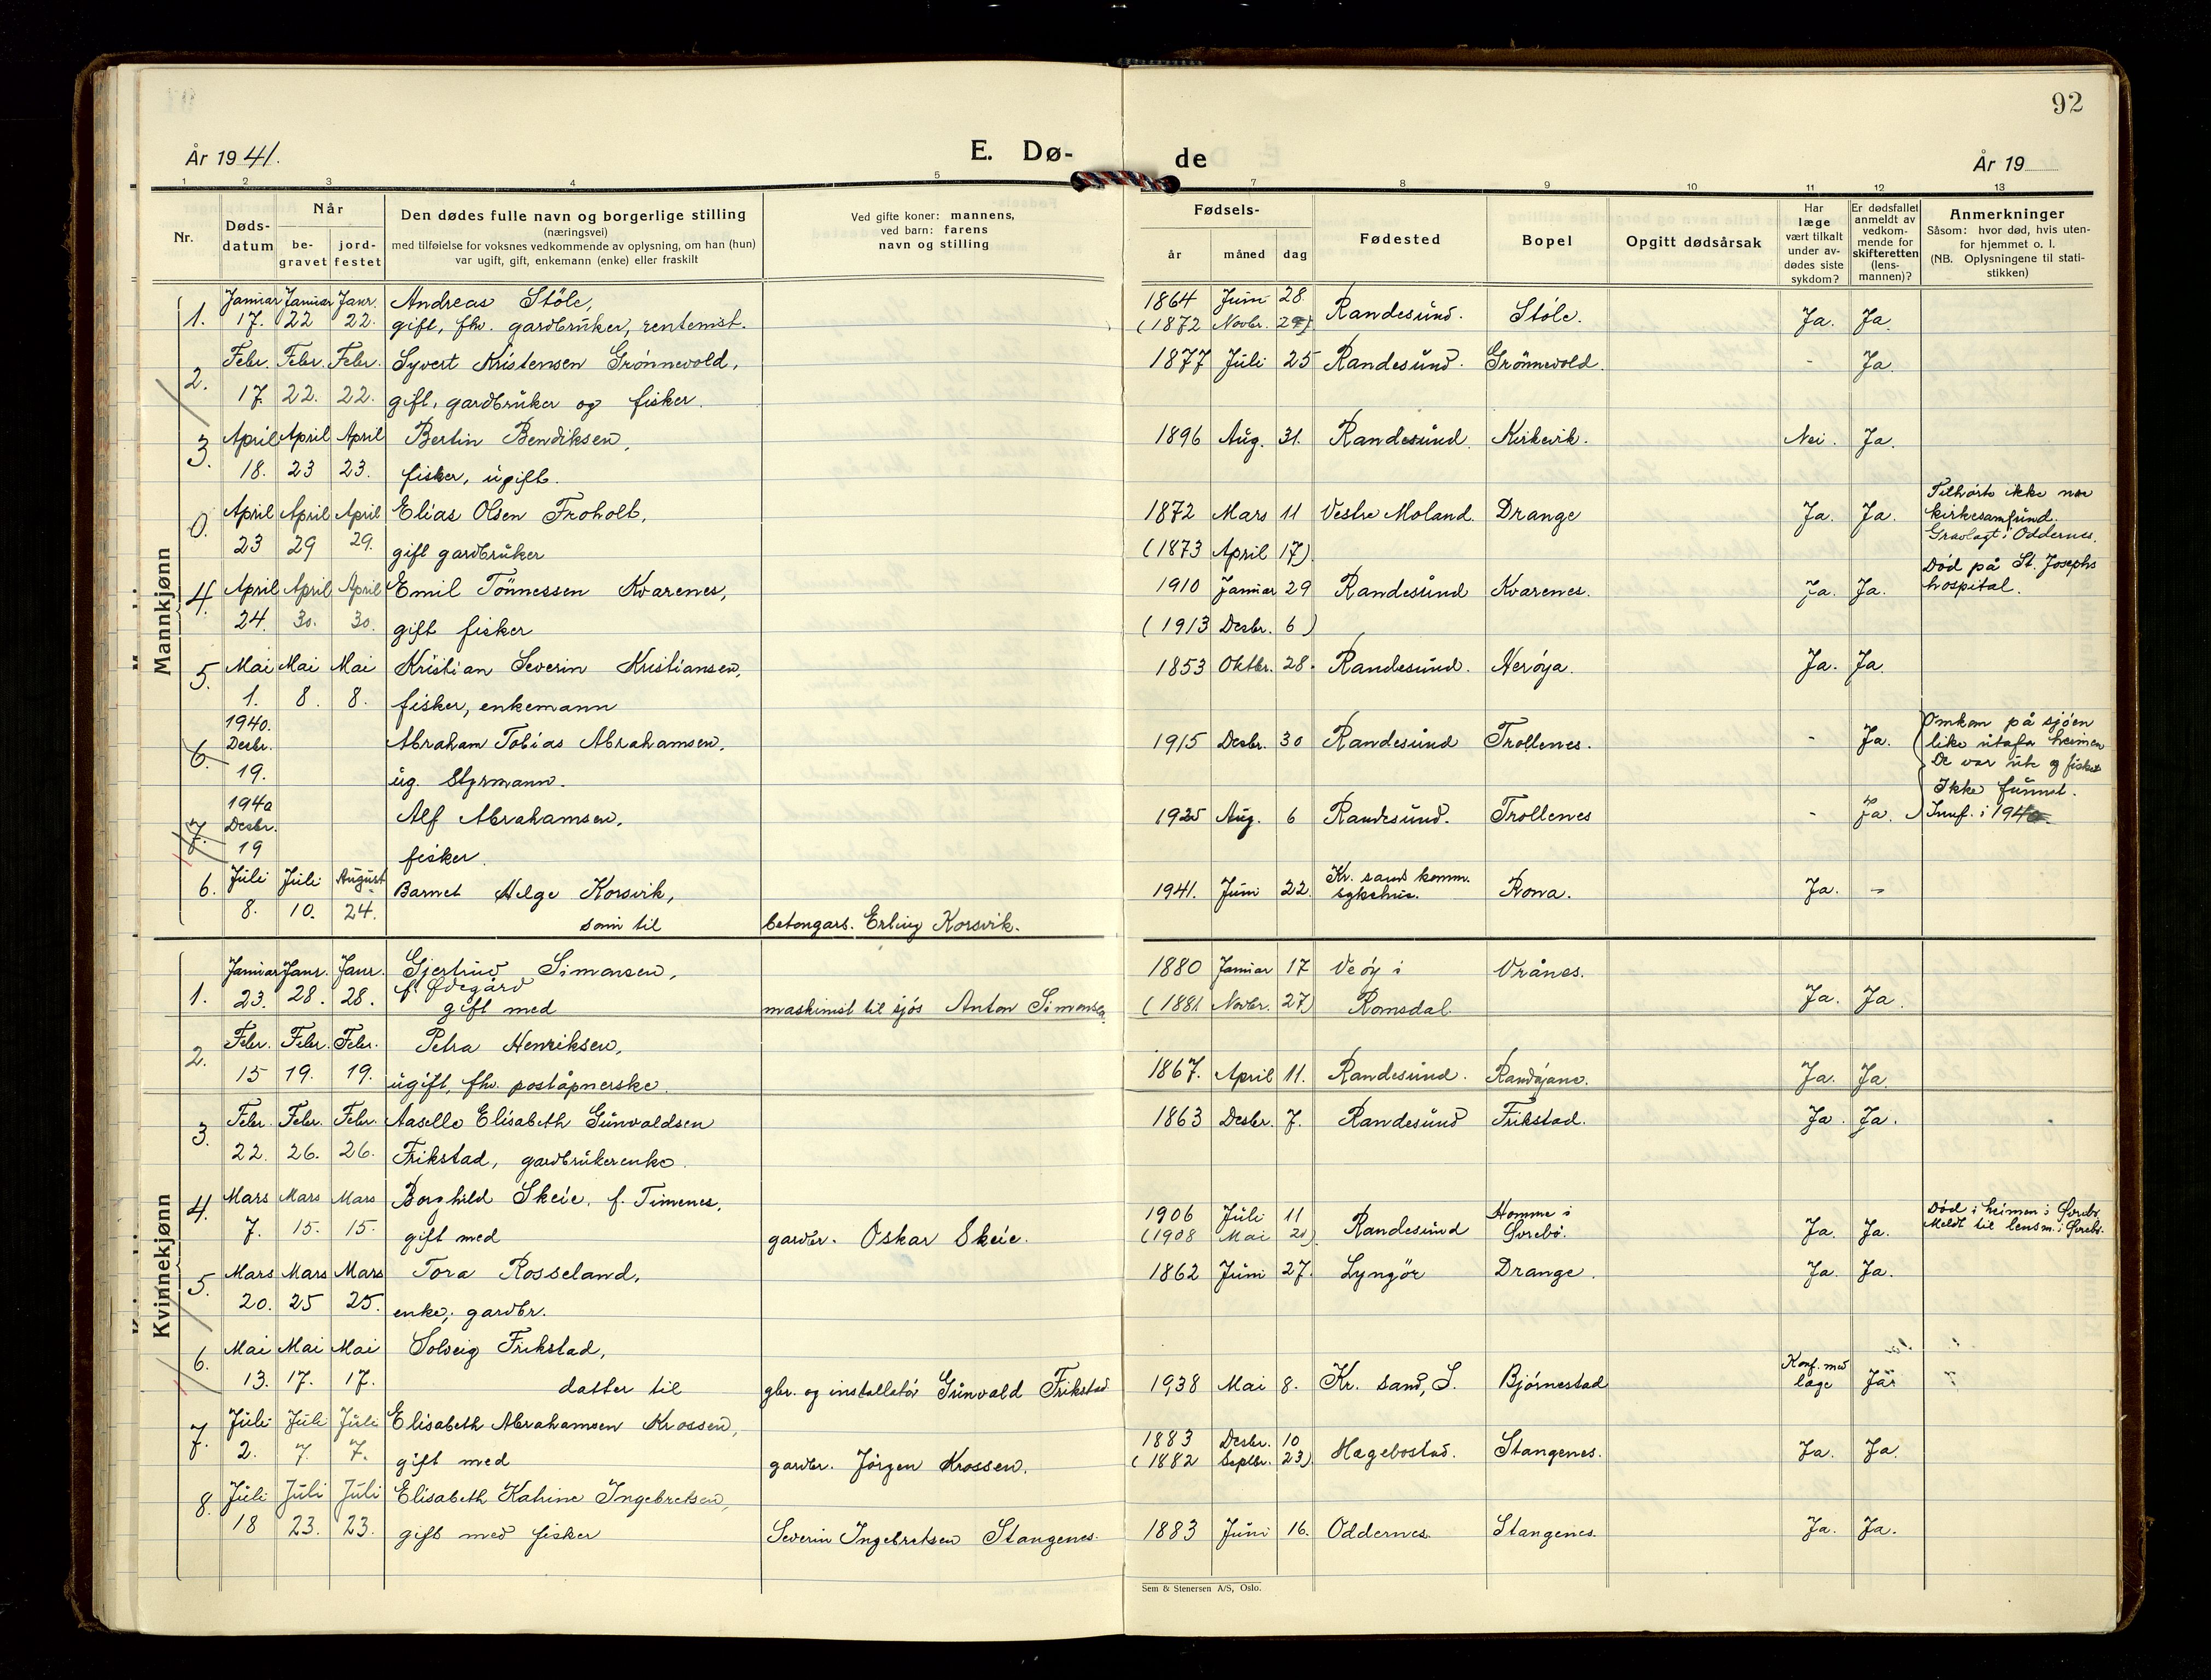 92
År 1941.
E. Dø-
de
År 19
1 2 3 4 5 7 8 9 10 11 12 13
Nr.
Døds-
datum
Når
be-
gravet
jord-
festet
Den dødes fulle navn og borgerlige stilling
(næringsvei)
med tilføielse for voksnes vedkommende av oplysning, om han (hun)
var ugift, gift, enkemann (enke) eller fraskilt
Ved gifte koner: mannens,
ved barn: farens
navn og stilling
Fødsels-
år måned dag
Fødested
Bopel
Opgitt dødsårsak
Har
læge
vært tilkalt
under av-
dødes siste
sykdom?
Er dødsfallet
anmeldt av
vedkom-
mende for
skifteretten
(lens-
mannen)?
Anmerkninger
Såsom: hvor død, hvis uten-
for hjemmet o. l.
(NB. Oplysningene til stati-
stikken)
Mannkjønn
1. Januar Januar Janr. Andreas Stöle, 1864 Juni 28. Randesund. Stöle. Ja. Ja.
17. 22 22. gift, fhv. gardbruker, rentenist. (1872 Novbr. 29)
2. Febr. Febr. Febr. Syvert Kristensen Grönnevold, 1877 Juli 25 Randesund. Grönnevold. - Ja.
17. 22. 22. gift, gardbruker og fisker.
3. April April April Bertin Bendiksen, 1896 Aug. 31. Randesund. Kirkevik. Nei. Ja.
18. 23 23. fisker, ugift.
0. April April April Elias Olsen Froholt, 1872 Mars 11 Vestre Moland. Drange Ja. Ja. Tilhørte ikke noe
kirkesamfund.
Gravlagt i Oddernes.
23 29 29. gift gardbruker (1873 April 17)
4. April April April Emil Tönnessen Kvarenes, 1910 Januar 29 Randesund Kvarenes. Ja. Ja. Död på St. Josephs
hospital.
24. 30. 30. gift fisker (1913 Desbr. 6)
5. Mai Mai Mai Kristian Severin Kristiansen, 1853 Oktbr. 28. Randesund. Herøya. Ja. Ja.
1. 8. 8. fisker, enkemann
6. 1940.
Desbr. Abraham Tobias Abrahamsen, 1915 Desbr. 30 Randesund Trollenes. - Ja. Omkom på sjøen
like utafor heimen
De var ute og fisket
19. ug. Styrmann. Ikke funnet.
7. 1940
Desbr. Alf Abrahamsen, 1925 Aug. 6 Randesund. Trollenes - Ja. Innf. i 1940.
19 fisker.
6. Juli Juli August Barnet Helge Korsvik, 1941. Juni 22. Kr. sand komm.
sykehus. Rona. Ja. -
8. 10. 24. sönn til betongarb. Erling Korsvik.
Kvinnekjønn
1. Januar Janr. Janr. Gjertrud Simonsen, 1880 Januar 17 Veöy i Vrånes.
f. Ødegård
23. 28. 28. gift med maskinist til sjös Anton Simonsen (1881 Novbr. 27) Romsdal. Ja. Ja.
2. Febr. Febr. Febr. Petra Henriksen,
15 19. 19. ugift, fhv. poståpnerske. 1867. April 11. Randesund. Randøjane. Ja. Ja.
3. Febr. Febr. Febr. Aaselle Elisabeth Gunvaldsen 1863 Desbr. 7. Randesund Frikstad. Ja. Ja.
22. 26. 26. Frikstad, gardbrukerenke.
4. Mars Mars Mars Borghild Skeie, f. Timenes, 1906 Juli 11 Randesund Homme i
Övrebö. Ja. Ja. Död i heimen i Övrebr.
Meldt til lensm. i Övrebö.
7. 15. 15. gift med gardbr. Oskar Skeie. (1908 Mai 21)
5. Mars Mars Mars Tora Rosseland, 1862 Juni 27. Lyngör Drange. Ja. Ja.
20. 25 25. enke, gardbr.
6. Mai Mai Mai Solveig Frikstad,
13. 17. 17. datter til gbr. og installatör Gunvald Frikstad 1938 Mai 8. Kr. sand, S. Bjørnestad Konf. med
læge
7. Juli Juli Juli Elisabeth Abrahamsen Krossen, 1883 Desbr. 10 Hægebostad. Stangenes. Ja. Ja.
2. 7. 7. gift med gardbr. Jørgen Krossen. (1882 Septbr. 23)
8. Juli Juli Juli Elisabeth Katrine Ingebretsen,
18 23. 23. gift med fisker Severin Ingebretsen Stangenes. 1883 Juni 16. Oddernes. Stangenes. Ja. Ja.
Sem & Stenersen A/S, Oslo.